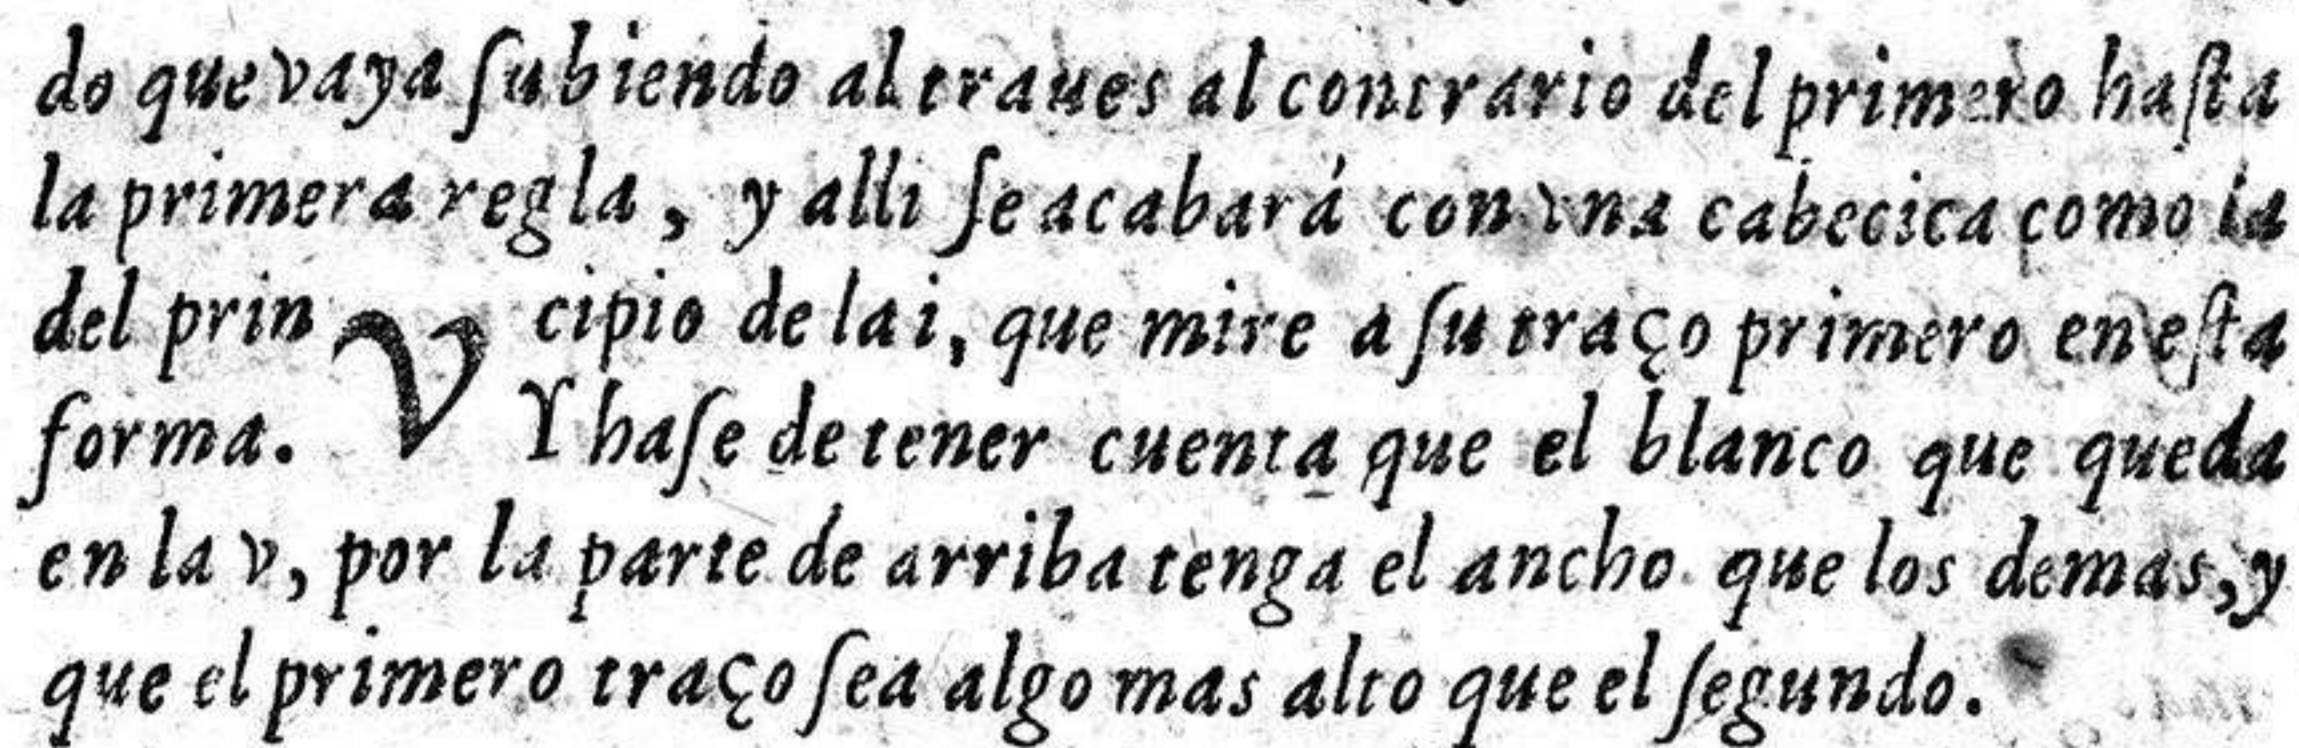 do que vaya ſubiendo al traues al contrario del primero haſta
la primera regla, y alli ſe acabará con vna cabecica como la
del prin V cipio de la i, que mire a ſu traço primero en eſta
forma. Y haſe de tener cuenta que el blanco que queda
en la v, por la parte de arriba tenga el ancho que los demas, y
que el primero traço ſea algo mas alto que el ſegundo.